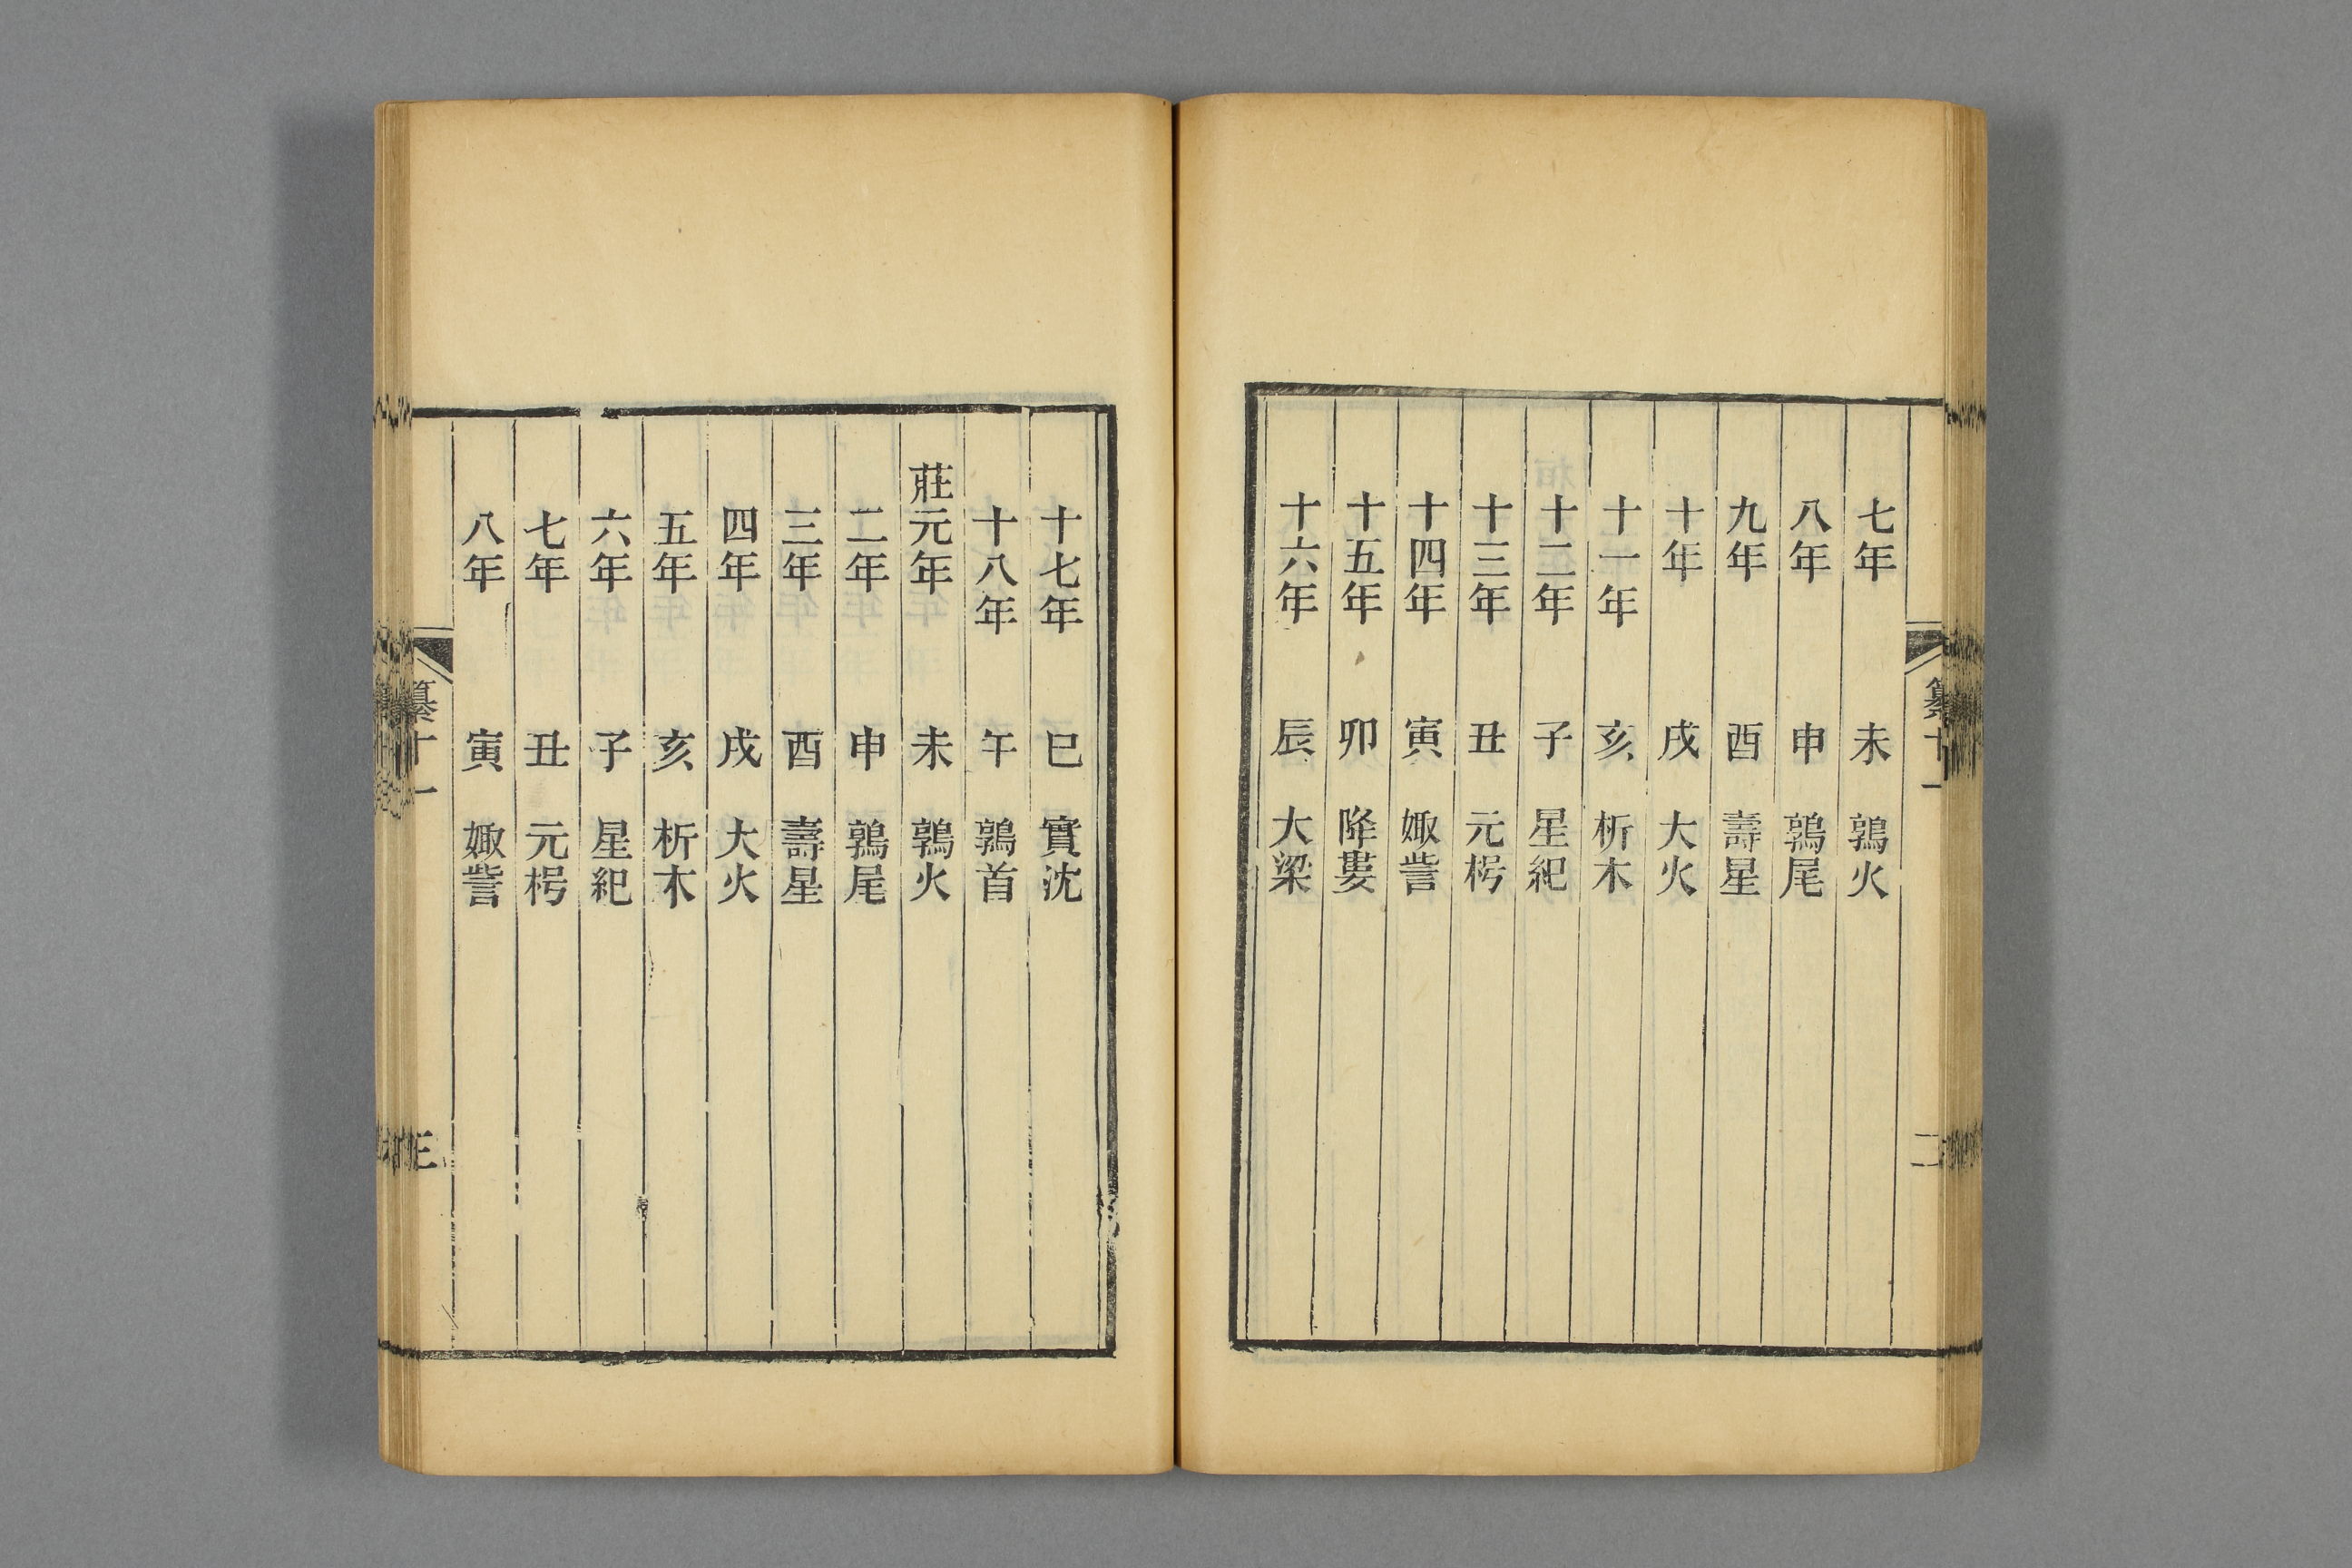 七年 未 鶉火
八年 申 鶉尾
九年 酉 壽星
十年 戌 大火
十一年 亥 析木
十二年 子 星紀
十三年 丑 元枵
十四年 寅 娵訾
十五年 卯 降婁
十六年 辰 大梁
纂十一
二
十七年 巳 實沈
十八年 午 鶉首
莊元年 未 鶉火
二年 申 鶉尾
三年 酉 壽星
四年 戌 大火
五年 亥 析木
六年 子 星紀
七年 丑 元枵
八年 寅 娵訾
纂十一
三